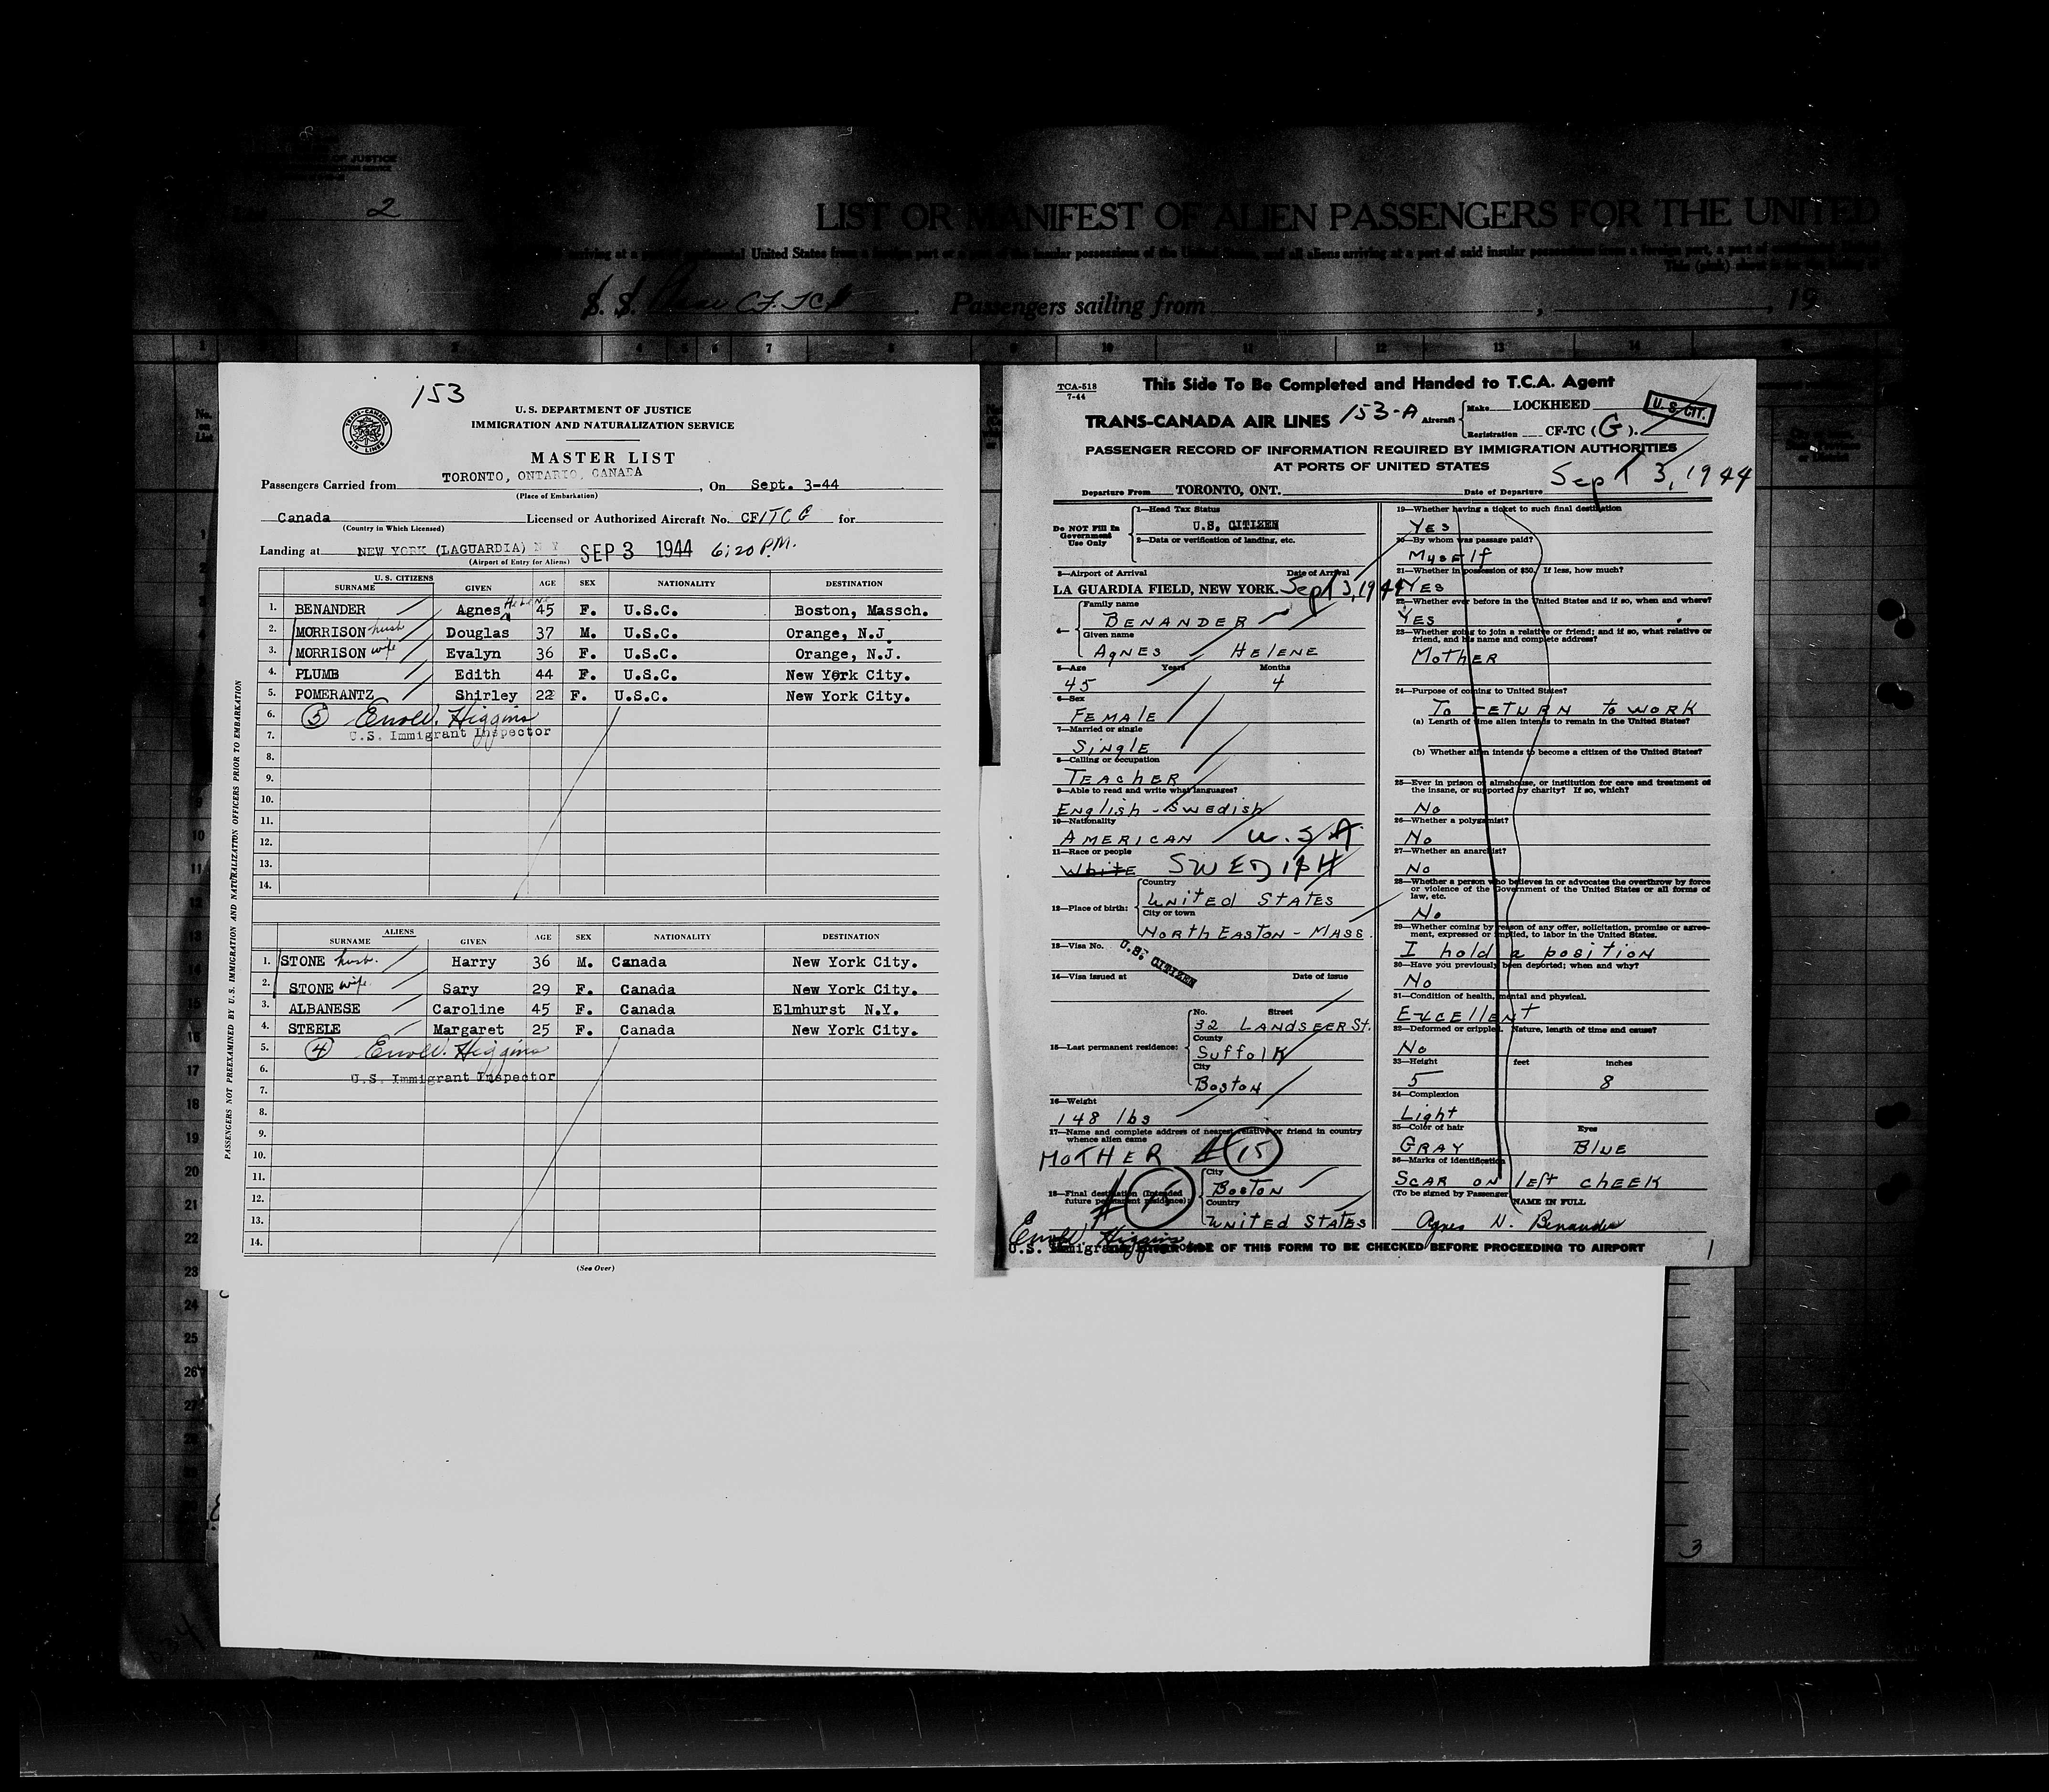 OF JUSTICE
2
LIST OR MANIFEST OF ALIEN PASSENGERS FOR THE UNITED
S. S. CF. TC Passengers sailing from , , 19
153
TRANS-CANADA AIR LINES
U. S. DEPARTMENT OF JUSTICE
IMMIGRATION AND NATURALIZATION SERVICE
MASTER LIST
Passengers Carried from TORONTO, ONTARIO, CANADA, On Sept. 3-44
(Place of Embarkation)
Canada Licensed or Authorized Aircraft No. CF/TC G for
(Country in Which Licensed)
Landing at NEW YORK (LAGUARDIA) N Y SEP 3 1944 6:20 P.M.
(Airport of Entry for Aliens)
U. S. CITIZENS
SURNAME GIVEN AGE SEX NATIONALITY DESTINATION
1. BENANDER Agnes Helene 45 F. U.S.C. Boston, Massch.
2. MORRISON husb Douglas 37 M. U.S.C. Orange, N.J
3. MORRISON wife Evalyn 36 F. U.S.C. Orange, N.J.
4. PLUMB Edith 44 F. U.S.C. New York City.
5. POMERANTZ Shirley 22 F. U.S.C. New York City.
6. 5 Errol V. Higgins
7. U.S. Immigrant Inspector
8.
9.
10.
11.
12.
13.
14.
ALIENS
SURNAME GIVEN AGE SEX NATIONALITY DESTINATION
1. STONE husb. Harry 36 M. Canada New York City.
2. STONE wife Sary 29 F. Canada New York City.
3. ALBANESE Caroline 45 F. Canada Elmhurst N.Y.
4. STEELE Margaret 25 F. Canada New York City.
5. 4 Errol V. Higgins
6. U.S. Immigrant Inspector
7.
8.
9.
10.
11.
12.
13.
14.
(See Over)
PASSENGERS NOT PREEXAMINED BY U.S. IMMIGRATION AND NATURALIZATION OFFICERS PRIOR TO EMBARKATION
TCA-518
7-44
This Side To Be Completed and Handed to T.C.A. Agent
TRANS-CANADA AIR LINES 153-A Aircraft Make LOCKHEED
Registration CF-TC (G).
U. S. CIT.
PASSENGER RECORD OF INFORMATION REQUIRED BY IMMIGRATION AUTHORITIES
AT PORTS OF UNITED STATES
Departure From TORONTO, ONT. Date of Departure Sept 3, 1944
Do NOT Fill In
Government
Use Only
1—Head Tax Status
U.S. CITIZEN
2—Data or verification of landing, etc.
3—Airport of Arrival Date of Arrival
LA GUARDIA FIELD, NEW YORK. Sept 3, 1944
4— Family name
BENANDER
Given name
AGNES HELENE
5—Age Years Months
45 4
6—Sex
FEMALE
7—Married or single
SINGLE
8—Calling or occupation
TEACHER
9—Able to read and write what languages?
English - Swedish
10—Nationality
AMERICAN U.S.A.
11—Race or people
White SWEDISH
12—Place of birth: Country
United States
City or town
North Easton - Mass.
13—Visa No. U.S. CITIZEN
14—Visa issued at Date of issue
15—Last permanent residence: No. Street
32 LANDSEER St.
County
Suffolk
City
Boston
16—Weight
148 lbs
17—Name and complete address of nearest relative or friend in country
whence alien came
MOTHER # 15
18—Final destination (Intended
future permanent residence): City
Boston
Country
United States
Errol V. Higgins
19—Whether having a ticket to such final destination
YES
20—By whom was passage paid?
Myself
21—Whether in possession of $50. If less, how much?
YES
22—Whether ever before in the United States and if so, when and where?
YES
23—Whether going to join a relative or friend; and if so, what relative or
friend, and his name and complete address?
MOTHER
24—Purpose of coming to United States?
To return to work
(a) Length of time alien intends to remain in the United States?
(b) Whether alien intends to become a citizen of the United States?
25—Ever in prison or almshouse, or institution for care and treatment of
the insane, or supported by charity? If so, which?
No
26—Whether a polygamist?
No
27—Whether an anarchist?
No
28—Whether a person who believes in or advocates the overthrow by force
or violence of the Government of the United States or all forms of
law, etc.
No
29—Whether coming by reason of any offer, solicitation, promise or agree-
ment, expressed or implied, to labor in the United States.
I hold a position
30—Have you previously been deported; when and why?
No
31—Condition of health, mental and physical.
Excellent
32—Deformed or crippled. Nature, length of time and cause?
No
33—Height feet inches
5 8
34—Complexion
Light
35—Color of hair Eyes
GRAY BLUE
36—Marks of identification
SCAR ON left cheek
(To be signed by Passenger) NAME IN FULL
Agnes H. Benander
OF THIS FORM TO BE CHECKED BEFORE PROCEEDING TO AIRPORT
1
3